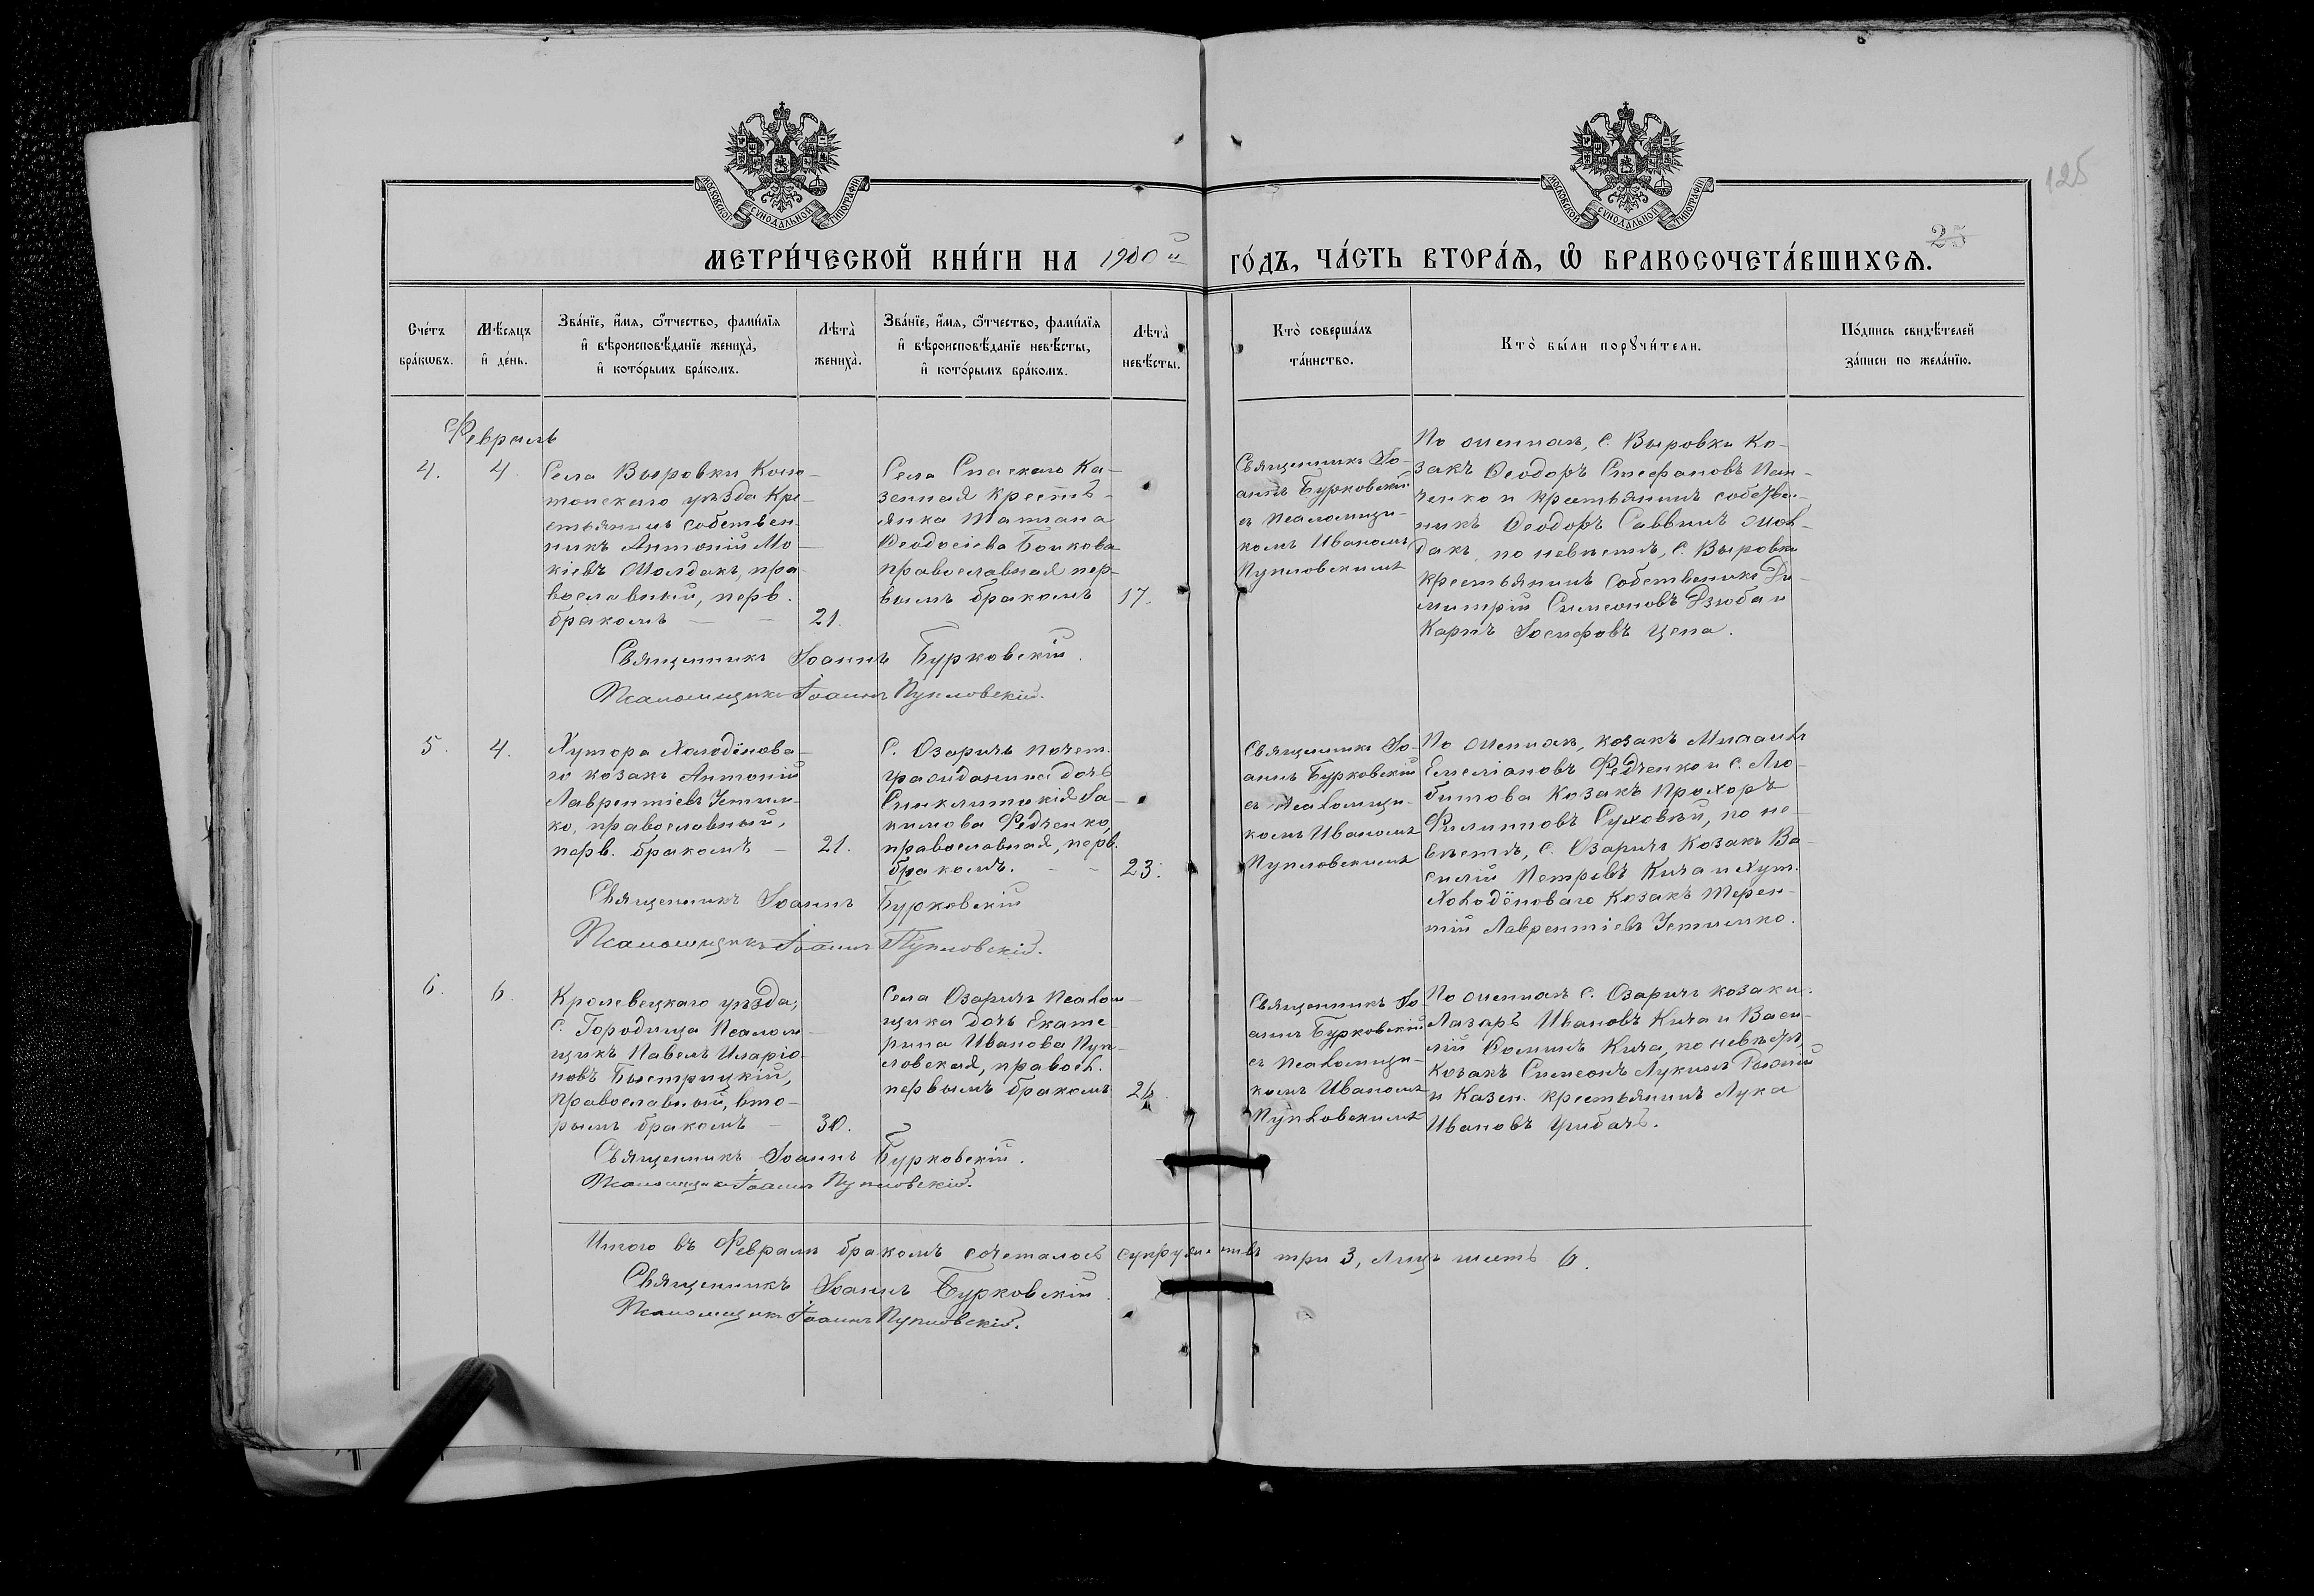 125
25
МОСКОВСКОЙ СУНОДАЛЬНОЙ ТИПОГРАФІИ
МОСКОВСКОЙ СУНОДАЛЬНОЙ ТИПОГРАФІИ
МЕТРИ́ЧЕСКОЙ КНИ́ГИ НА 1900й ГО́ДЪ, ЧА́СТЬ ВТОРА́Ѧ, Ѽ БРАКОСОЧЕТА́ВШИХСѦ.
Сче́тъ
бра́кѡвъ.
Мѣ́сяцъ
и҆ де́нь.
Зва́нїе, и҆́мѧ, ѻ҆́тчество, фами́лїѧ
и҆ вѣроисповѣ́данїе жениха̀,
и҆ кото́рымъ бра́комъ.
Лѣта̀
жениха̀.
Зва́нїе, и҆́мѧ, ѻ҆́тчество, фами́лїѧ
и҆ вѣроисповѣ́данїе невѣ́сты,
и҆ кото́рымъ бра́комъ.
Лѣта̀
невѣ́сты.
Кто̀ соверша́лъ
та́инство.
Кто̀ бы́ли порꙋчи́тели.
По́дпись свидѣ́телей
за́писи по жела́нїю.
Февраль
4.
4
Села Выровки Коно-
топскаго уѣзда Кре-
стьянинъ собствен-
никъ Антоній Мо-
кіевъ Молдакъ, пра-
вославный, перв.
бракомъ
21.
Села Спаскаго Ка-
зенная кресть-
янка Татіана
Ѳеодосіева Бойкова
православная пер-
вымъ бракомъ
17.
Священникъ Іо-
аннъ Бурковскій
съ псаломщи-
комъ Иваномъ
Пупловскимъ
По женихѣ, с. Выровки Ко-
закъ Ѳеодоръ Стефановъ Пан-
ченко и крестьянинъ собствен-
никъ Ѳеодоръ Саввинъ Мол-
дакъ, по невѣстѣ, с. Выровки
крестьянинъ собственникъ Ди-
митрій Симеоновъ Дзюба и
Карпъ Іосифовъ Цепа.
Священникъ Іоаннъ Бурковскій.
Псаломщикъ Іоаннъ Пупловскій.
5.
4.
Хутора Холодёнова-
го козакъ Антоній
Лаврентіевъ Устим-
ко, православный,
перв. бракомъ
21.
С. Озаричъ почет.
гражданина дочь
Синклитикія Іа-
кимова Федченко,
православная, перв.
бракомъ.
23.
Священникъ Іо-
аннъ Бурковскій
съ псаломщи-
комъ Иваномъ
Пупловскимъ
По женихѣ, козакъ Михаилъ
Емеліановъ Федченко и с. Лю-
битова Козакъ Прохоръ
Филипповъ Суховѣй, по не-
вѣстѣ, с. Озаричъ Козакъ Ва-
силій Петровъ Кича и Хут.
Холодёноваго Козакъ Терен-
тій Лаврентіевъ Устимко.
Священникъ Іоаннъ Бурковскій
Псаломщикъ Іоаннъ Пупловскій.
6.
6.
Кролевецкаго уѣзда,
с. Городища Псалом-
щикъ Павелъ Иларіо-
новъ Быстрицкій,
православный, вто-
рымъ бракомъ
30.
Села Озаричъ Псалом-
щика дочь Екате-
рина Иванова Пуп-
ловская, правосл.
первымъ бракомъ
Священникъ Іо-
аннъ Бурковскій
съ псаломщи-
комъ Иваномъ
Пупловскимъ
По женихѣ с. Озаричъ козаки:
Лазарь Ивановъ Кича и Васи-
лій Ѳоминъ Кича, по невѣстѣ,
козакъ Симеонъ Лукинъ Рыжій
и Казен. крестьянинъ Лука
Ивановъ
Священникъ Іоаннъ Бурковскій.
Псаломщикъ Іоаннъ Пупловскій.
Итого въ Февралѣ бракомъ сочеталось супружествъ три 3, лицъ шесть 6.
Священникъ Іоаннъ Бурковскій
Псаломщикъ Іоаннъ Пупловскій.